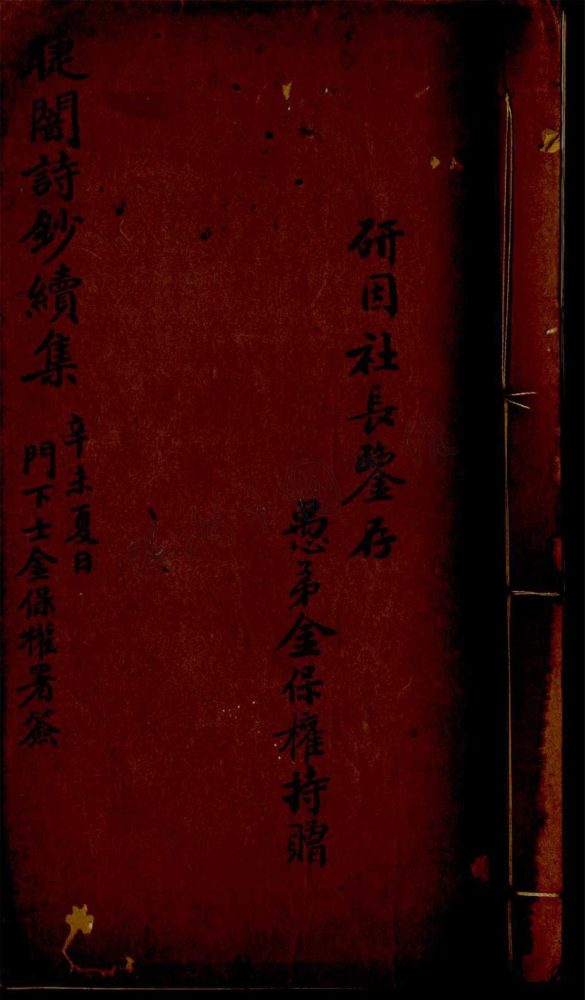 研因社長鑒存
愚弟金保權持贈
闇詩鈔續集
辛未夏日
門下士金保權署簽